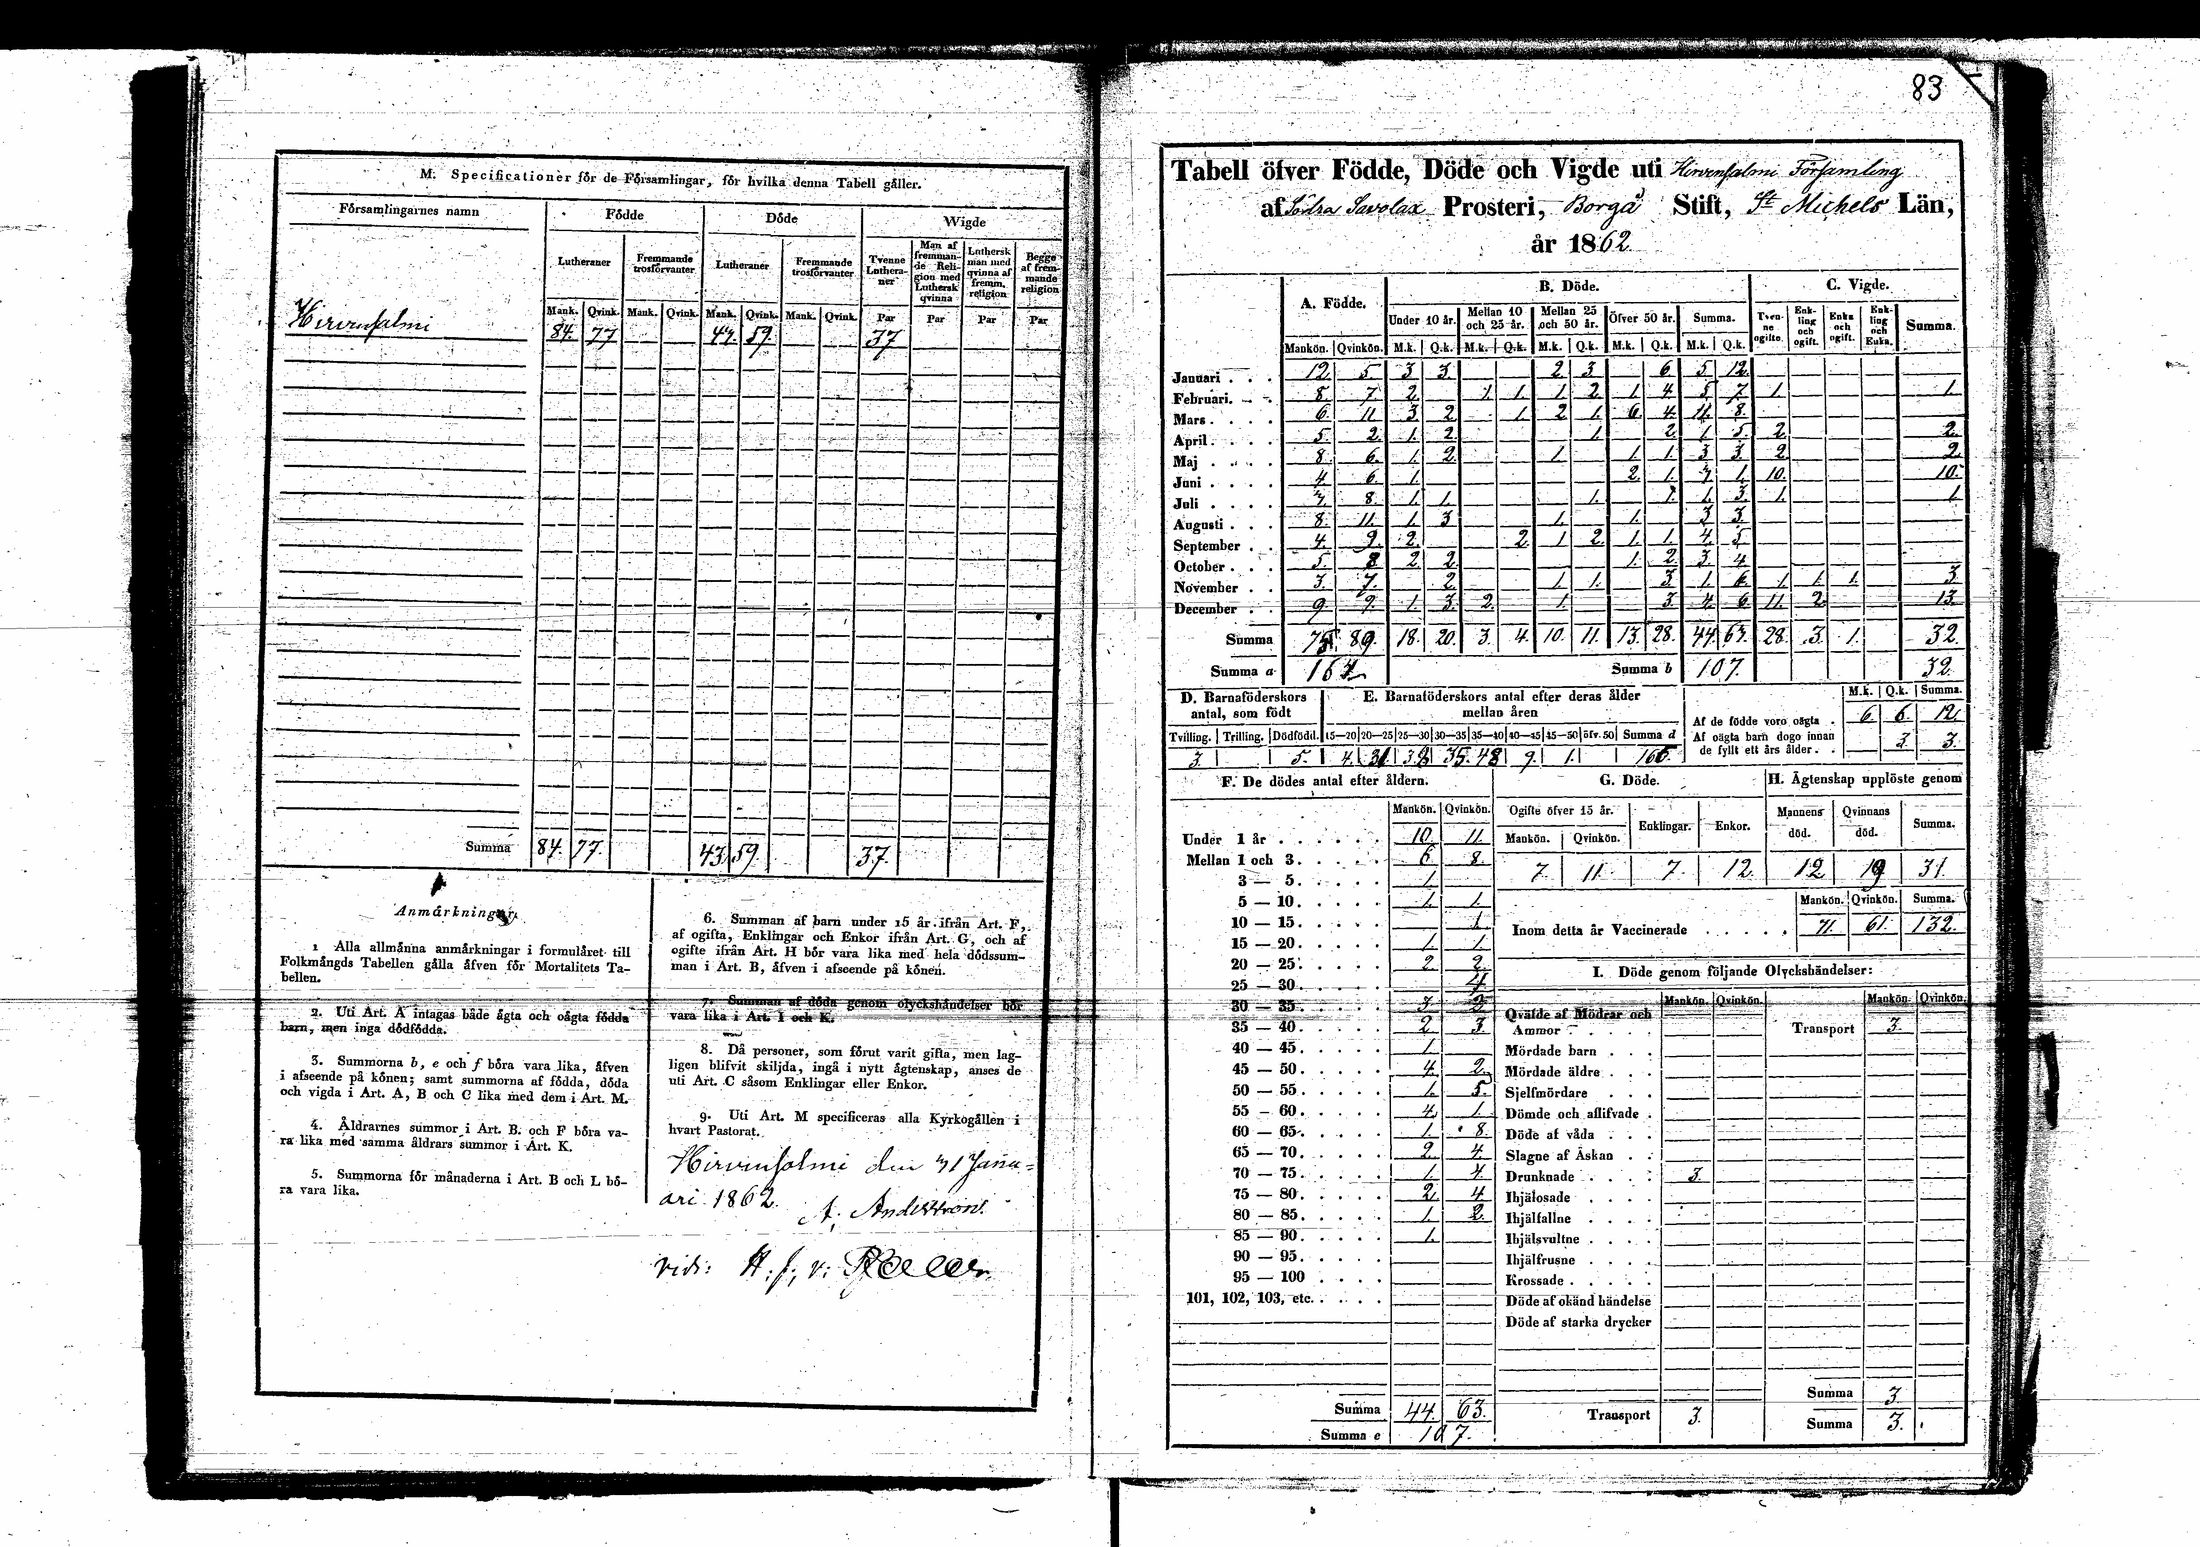 M. Specificationer för de Församlingar, för hvilka denna Tabell gäller.
Församlingarnes namn | Födde | Döde | Wigde
Lutheraner | Fremmande trosförvanter | Lutheraner | Fremmande trosförvanter | Tvenne Lutheraner | Man af fremmande Religion med Luthersk qvinna | Luthersk man med qvinna af fremm. religion | Begge af fremmande religion
Mank. | Qvink. | Mank. | Qvink. | Mank. | Qvink. | Mank. | Qvink. | Par | Par | Par | Par
Hirvensalmi 84. 77 43. 59. 37
Summa 84. 77. 43 59. 37.
Anmärkningar.
1 Alla allmänna anmärkningar i formuläret till
Folkmängds Tabellen gälla äfven för Mortalitets Ta-
bellen.
2. Uti Art. A intagas både ägta och oägta födda
barn, men inga dödfödda.
3. Summorna b, e och f böra vara lika, äfven
i afseende på könen; samt summorna af födda, döda
och vigda i Art. A, B och C lika med dem i Art. M.
4. Åldrarnes summor i Art. B. och F böra va-
ra lika med samma åldrars summor i Art. K.
5. Summorna för månaderna i Art. B och L bö-
ra vara lika.
6. Summan af barn under 15 år ifrån Art. F,
af ogifta, Enklingar och Enkor ifrån Art. G, och af
ogifte ifrån Art. H bör vara lika med hela dödssum-
man i Art. B, äfven i afseende på könen.
7. Summan af döda genom olyckshändelser bör
vara lika i Art. I och K.
8. Då personer, som förut varit gifta, men lag-
ligen blifvit skiljda, ingå i nytt ägtenskap, anses de
uti Art. C såsom Enklingar eller Enkor.
9. Uti Art. M specificeras alla Kyrkogällen i
hvart Pastorat.
Hirvensalmi den 31 Janu-
ari 1862.
A. Anderson.
vidi:
83
Tabell öfver Födde, Döde och Vigde uti Hirvensalmi Församling
af Södra Savolax Prosteri, Borgå Stift, St Michels Län,
år 1862.
A. Födde. | B. Döde. | C. Vigde.
Under 10 år. | Mellan 10 och 25 år. | Mellan 25 och 50 år. | Öfver 50 år. | Summa. | Tvenne ogifte. | Enkling och ogift. | Enka och ogift. | Enkling och Enka. | Summa.
Mankön. | Qvinkön. | M.k. | Q.k. | M.k. | Q.k. | M.k. | Q.k. | M.k. | Q.k. | M.k. | Q.k.
Januari . . . 12. 5. 3 3. 2 3. 6 5 12.
Februari. . . 8. 7 2. 1. 1. 1. 2. 1. 4. 5. 7. 1. 1.
Mars . . . . 6. 11. 3 2. 1. 2 1. 6. 4. 11. 8.
April . . . . 5. 2. 1. 2. 1. 2. 1. 5. 2. 2.
Maj . . . . 8. 6. 1. 2. 1. 1. 1. 3 3. 2. 2.
Juni . . . . 4 6. 1. 2. 1. 1. 10. 10.
Juli . . . . 8. 1. 1. 1. 1. 1. 3. 1. 1
Augusti . . . 8. 11. 1. 3 1. 1. 3 3.
September . . 4. 9. 2. 2. 1 2. 1. 1. 4. 5
October . . . 5. 8. 2 2. 1. 2. 3. 4
November . . 3. 7. 2. 1. 1. 3. 1. 6. 1. 1. 1. 3.
December . . 9 9. 1. 3. 2. 1. 3. 4. 6. 11. 2. 13.
Summa 89. 18. 20. 3. 4. 10. 11. 13. 28. 44. 63. 28. 3. 1. 32.
Summa a
Summa b 107. 32.
D. Barnaföderskors antal, som födt
Tvilling. | Trilling. | Dödfödd.
3. 5.
E. Barnaföderskors antal efter deras ålder mellan åren
15—20 | 20—25 | 25—30 | 30—35 | 35—40 | 40—45 | 45—50 | öfv. 50 | Summa d
4. 35. 48 9. 1.
M.k. | Q.k. | Summa.
Af de födde voro oägta . 6. 6. 12.
Af oägta barn dogo innan
de fyllt ett års ålder . . 3. 3.
F. De dödes antal efter åldern.
Mankön. | Qvinkön.
Under 1 år . . . . . . 10. 11.
Mellan 1 och 3. . . . . 6 8.
3 — 5. . . . . 1.
5 — 10. . . . . 1. 1.
10 — 15. . . . . 1.
15 — 20. . . . . 1. 1.
20 — 25. . . . . 2. 2.
25 — 30. . . . . 4
30 — 35. . . . . 3 2
35 — 40. . . . . 2 3.
40 — 45. . . . . 1.
45 — 50. . . . . 4. 2.
50 — 55. . . . . 1. 5.
55 — 60. . . . . 4. 1.
60 — 65. . . . . 1. 8.
65 — 70. . . . . 2. 4.
70 — 75. . . . . 1. 4.
75 — 80. . . . . 2. 4
80 — 85. . . . . 1. 2.
85 — 90. . . . . 1.
90 — 95. . . . .
95 — 100 . . . .
101, 102, 103, etc. . . . .
Summa 44. 63.
Summa e 107.
G. Döde.
Ogifte öfver 15 år. | Enklingar. | Enkor.
Mankön. | Qvinkön.
7. 11. 7. 12.
H. Ägtenskap upplöste genom
Mannens död. | Qvinnans död. | Summa.
12 19 31.
Mankön. | Qvinkön. | Summa.
Inom detta år Vaccinerade . . . . . 71. 61. 132.
I. Döde genom följande Olyckshändelser:
Mankön. | Qvinkön. | Mankön. | Qvinkön.
Qväfde af Mödrar och
Ammor . . . .
Transport 3.
Mördade barn . . .
Mördade äldre . . .
Sjelfmördare . . .
Dömde och aflifvade .
Döde af våda . . .
Slagne af Åskan . .
Drunknade . . . . 3.
Ihjälosade . . . .
Ihjälfallne . . . .
Ihjälsvultne . . . .
Ihjälfrusne . . . .
Krossade . . . . .
Döde af okänd händelse
Döde af starka drycker
Summa 3.
Transport 3.
Summa 3.